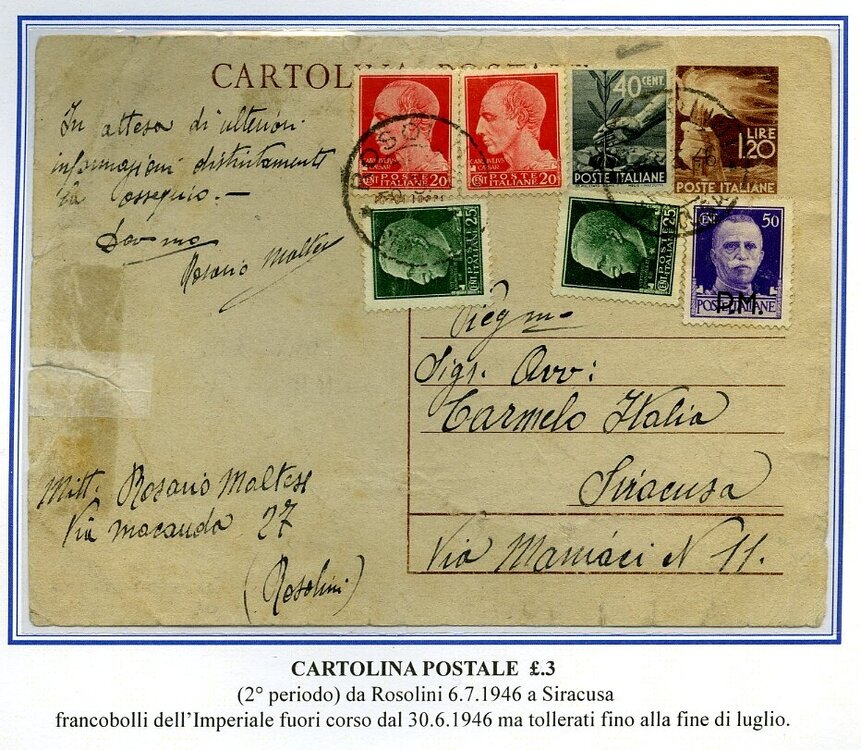 CARTOLINA POSTALE
In attesa di ulteriori
informazioni distintamente
La ossequio. —
Rosario Maltese
CENT POSTE ITALIANE 20
CENT POSTE ITALIANE 20
40 CENT.
POSTE ITALIANE
LIRE
1.20
POSTE ITALIANE
CENT POSTE ITALIANE 25
CENT POSTE ITALIANE 25
CENT 50
POSTE ITALIANE
P.M.
Sigr. Avv:
Carmelo Italia
Siracusa
Via Maniaci N 11.
Mitt. Rosario Maltese
Via macauda 27
(Rosolini)
CARTOLINA POSTALE £.3
(2° periodo) da Rosolini 6.7.1946 a Siracusa
francobolli dell'Imperiale fuori corso dal 30.6.1946 ma tollerati fino alla fine di luglio.